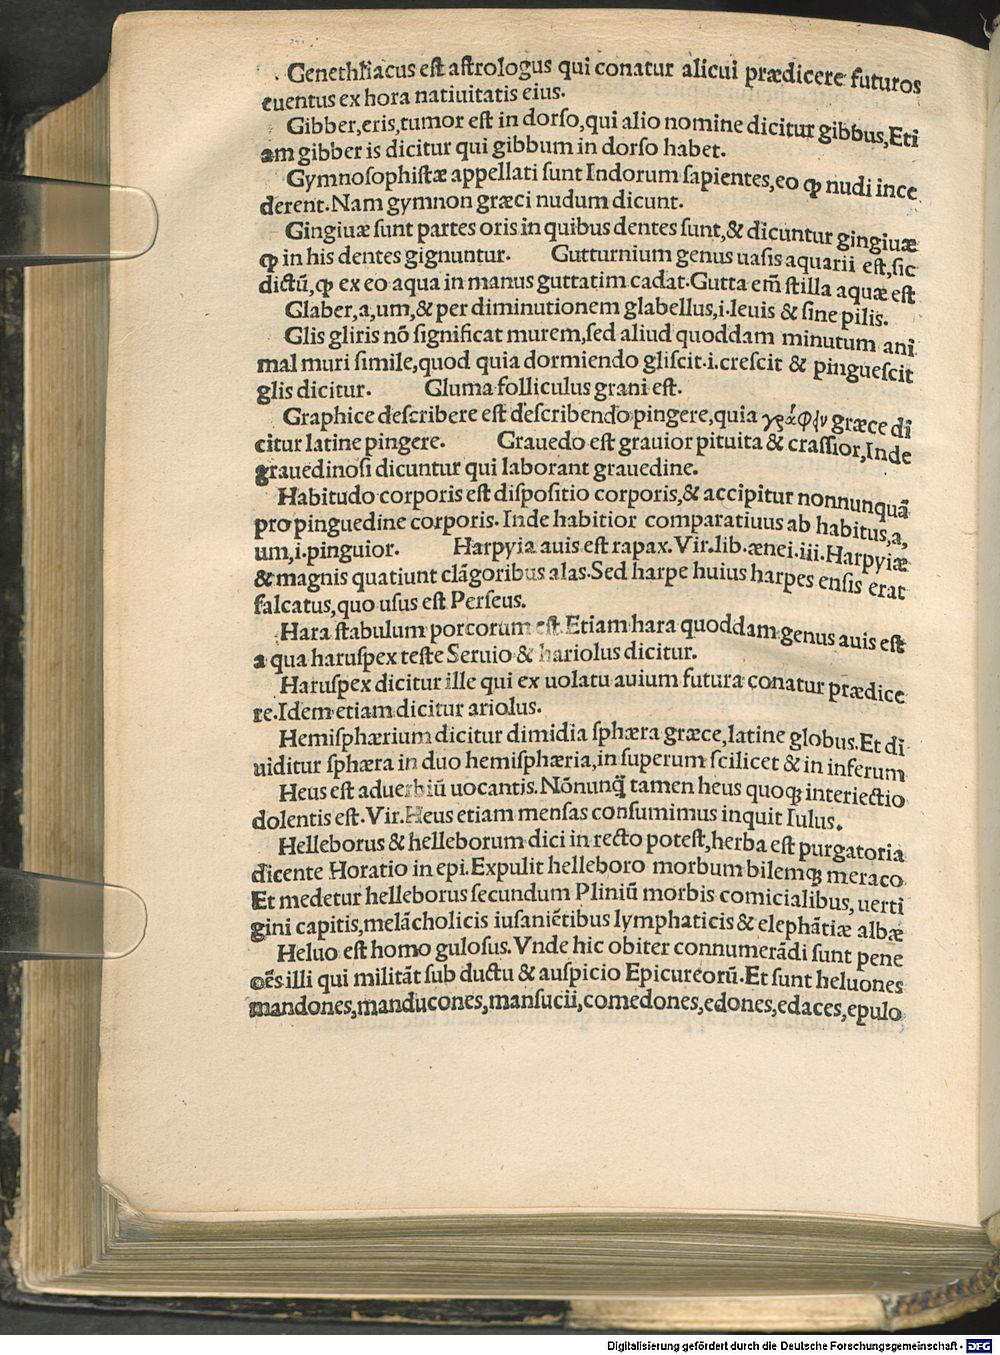 Genethliacus eſt aſtrologus qui conatur alicui prædicere futuros
euentus ex hora natiuitatis eius.
Gibber,eris,tumor eſt in dorſo,qui alio nomine dicitur gibbus,Eti
am gibber is dicitur qui gibbum in dorſo habet.
Gymnoſophiſtæ appellati ſunt Indorum ſapientes,eo ꝙ nudi ince
derent.Nam gymnon græci nudum dicunt.
Gingiuæ ſunt partes oris in quibus dentes ſunt,& dicuntur gingiuæ
ꝙ in his dentes gignuntur. Gutturnium genus uaſis aquarii eſt,ſic
dictū,ꝙ ex eo aqua in manus guttatim cadat.Gutta em̄ ſtilla aquæ eſt
Glaber,a,um,& per diminutionem glabellus,i.leuis & ſine pilis.
Glis gliris nō ſignificat murem,ſed aliud quoddam minutum ani
mal muri ſimile,quod quia dormiendo gliſcit.i.creſcit & pingueſcit
glis dicitur. Gluma folliculus grani eſt.
Graphice deſcribere eſt deſcribendo pingere,quia γράφην græce di
citur latine pingere. Grauedo eſt grauior pituita & craſſior,Inde
grauedinoſi dicuntur qui laborant grauedine.
Habitudo corporis eſt diſpoſitio corporis,& accipitur nonnunquā
pro pinguedine corporis.Inde habitior comparatiuus ab habitus,a,
um,i.pinguior. Harpyia auis eſt rapax.Vir.lib.ænei.iii.Harpyiæ
& magnis quatiunt clāgoribus alas.Sed harpe huius harpes enſis erat
falcatus,quo uſus eſt Perſeus.
Hara ſtabulum porcorum eſt.Etiam hara quoddam genus auis eſt
a qua haruſpex teſte Seruio & hariolus dicitur.
Haruſpex dicitur ille qui ex uolatu auium futura conatur prædice
re.Idem etiam dicitur ariolus.
Hemiſphærium dicitur dimidia ſphæra græce,latine globus.Et di
uiditur ſphæra in duo hemiſphæria,in ſuperum ſcilicet & in inferum
Heus eſt aduerbiū uocantis.Nōnunq̄ tamen heus quoqꝫ interiectio
dolentis eſt.Vir.Heus etiam menſas conſumimus inquit Iulus.
Helleborus & helleborum dici in recto poteſt,herba eſt purgatoria
dicente Horatio in epi.Expulit helleboro morbum bilemqꝫ meraco
Et medetur helleborus ſecundum Pliniū morbis comicialibus,uerti
gini capitis,melācholicis iuſaniētibus lymphaticis & elephātiæ albæ
Heluo eſt homo guloſus.Vnde hic obiter connumerādi ſunt pene
oēs illi qui militāt ſub ductu & auſpicio Epicureorū.Et ſunt heluones
mandones,manducones,manſucii,comedones,edones,edaces,epulo
Digitalisierung gefördert durch die Deutsche Forschungsgemeinschaft - DFG